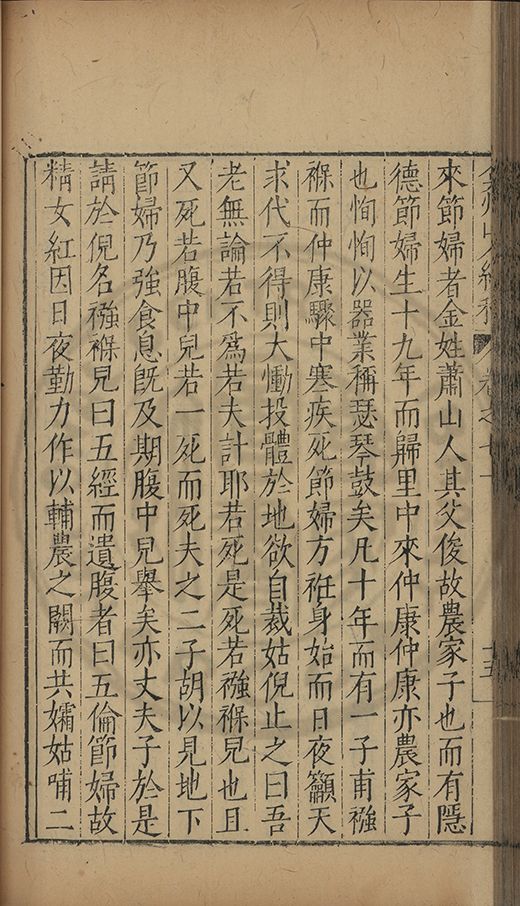 來節婦者金姓蕭山人其父俊故農家子也而有隱
德節婦生十九年而歸里中來仲康仲康亦農家子
也恂恂以器業稱瑟琴鼓矣凡十年而有一子甫襁
褓而仲康驟中寒疾死節婦方祍身始而日夜籲天
求代不得則大慟投體於地欲自裁姑倪止之曰吾
老無論若不爲若夫計耶若死是死若襁褓兒也且
又死若腹中兒若一死而死夫之二子胡以見地下
節婦乃強食息旣及期腹中兒舉矣亦丈夫子於是
請於倪名襁褓兒曰五經而遺腹者曰五倫節婦故
精女紅因日夜勤力作以輔農之闕而共孀姑哺二